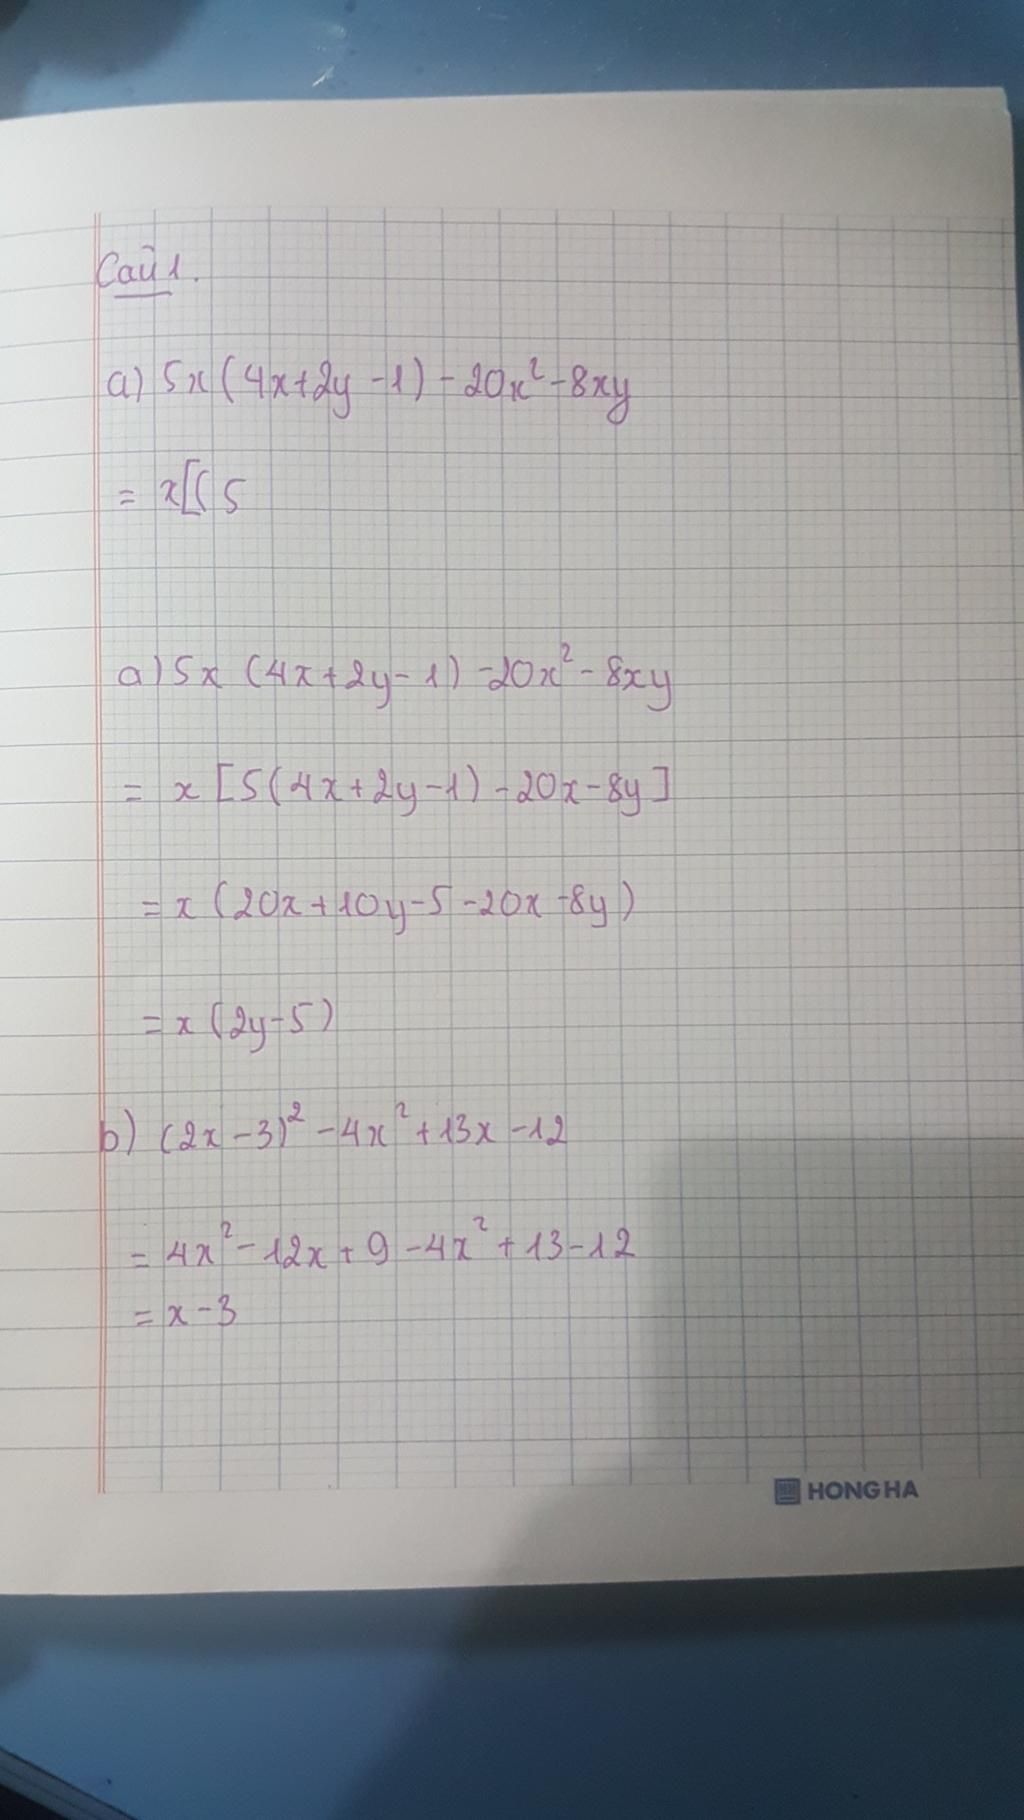 Caũ 1.
a) 5x(4x+2y-1)-20x²-8xy
= x[(5
a) 5x (4x+2y-1)-20x²-8xy
= x [5(4x+2y-1)-20x-8y]
= x (20x+10y-5-20x-8y)
= x (2y-5)
b) (2x-3)²-4x²+13x-12
= 4x²-12x+9-4x²+13-12
= x-3
HONG HA